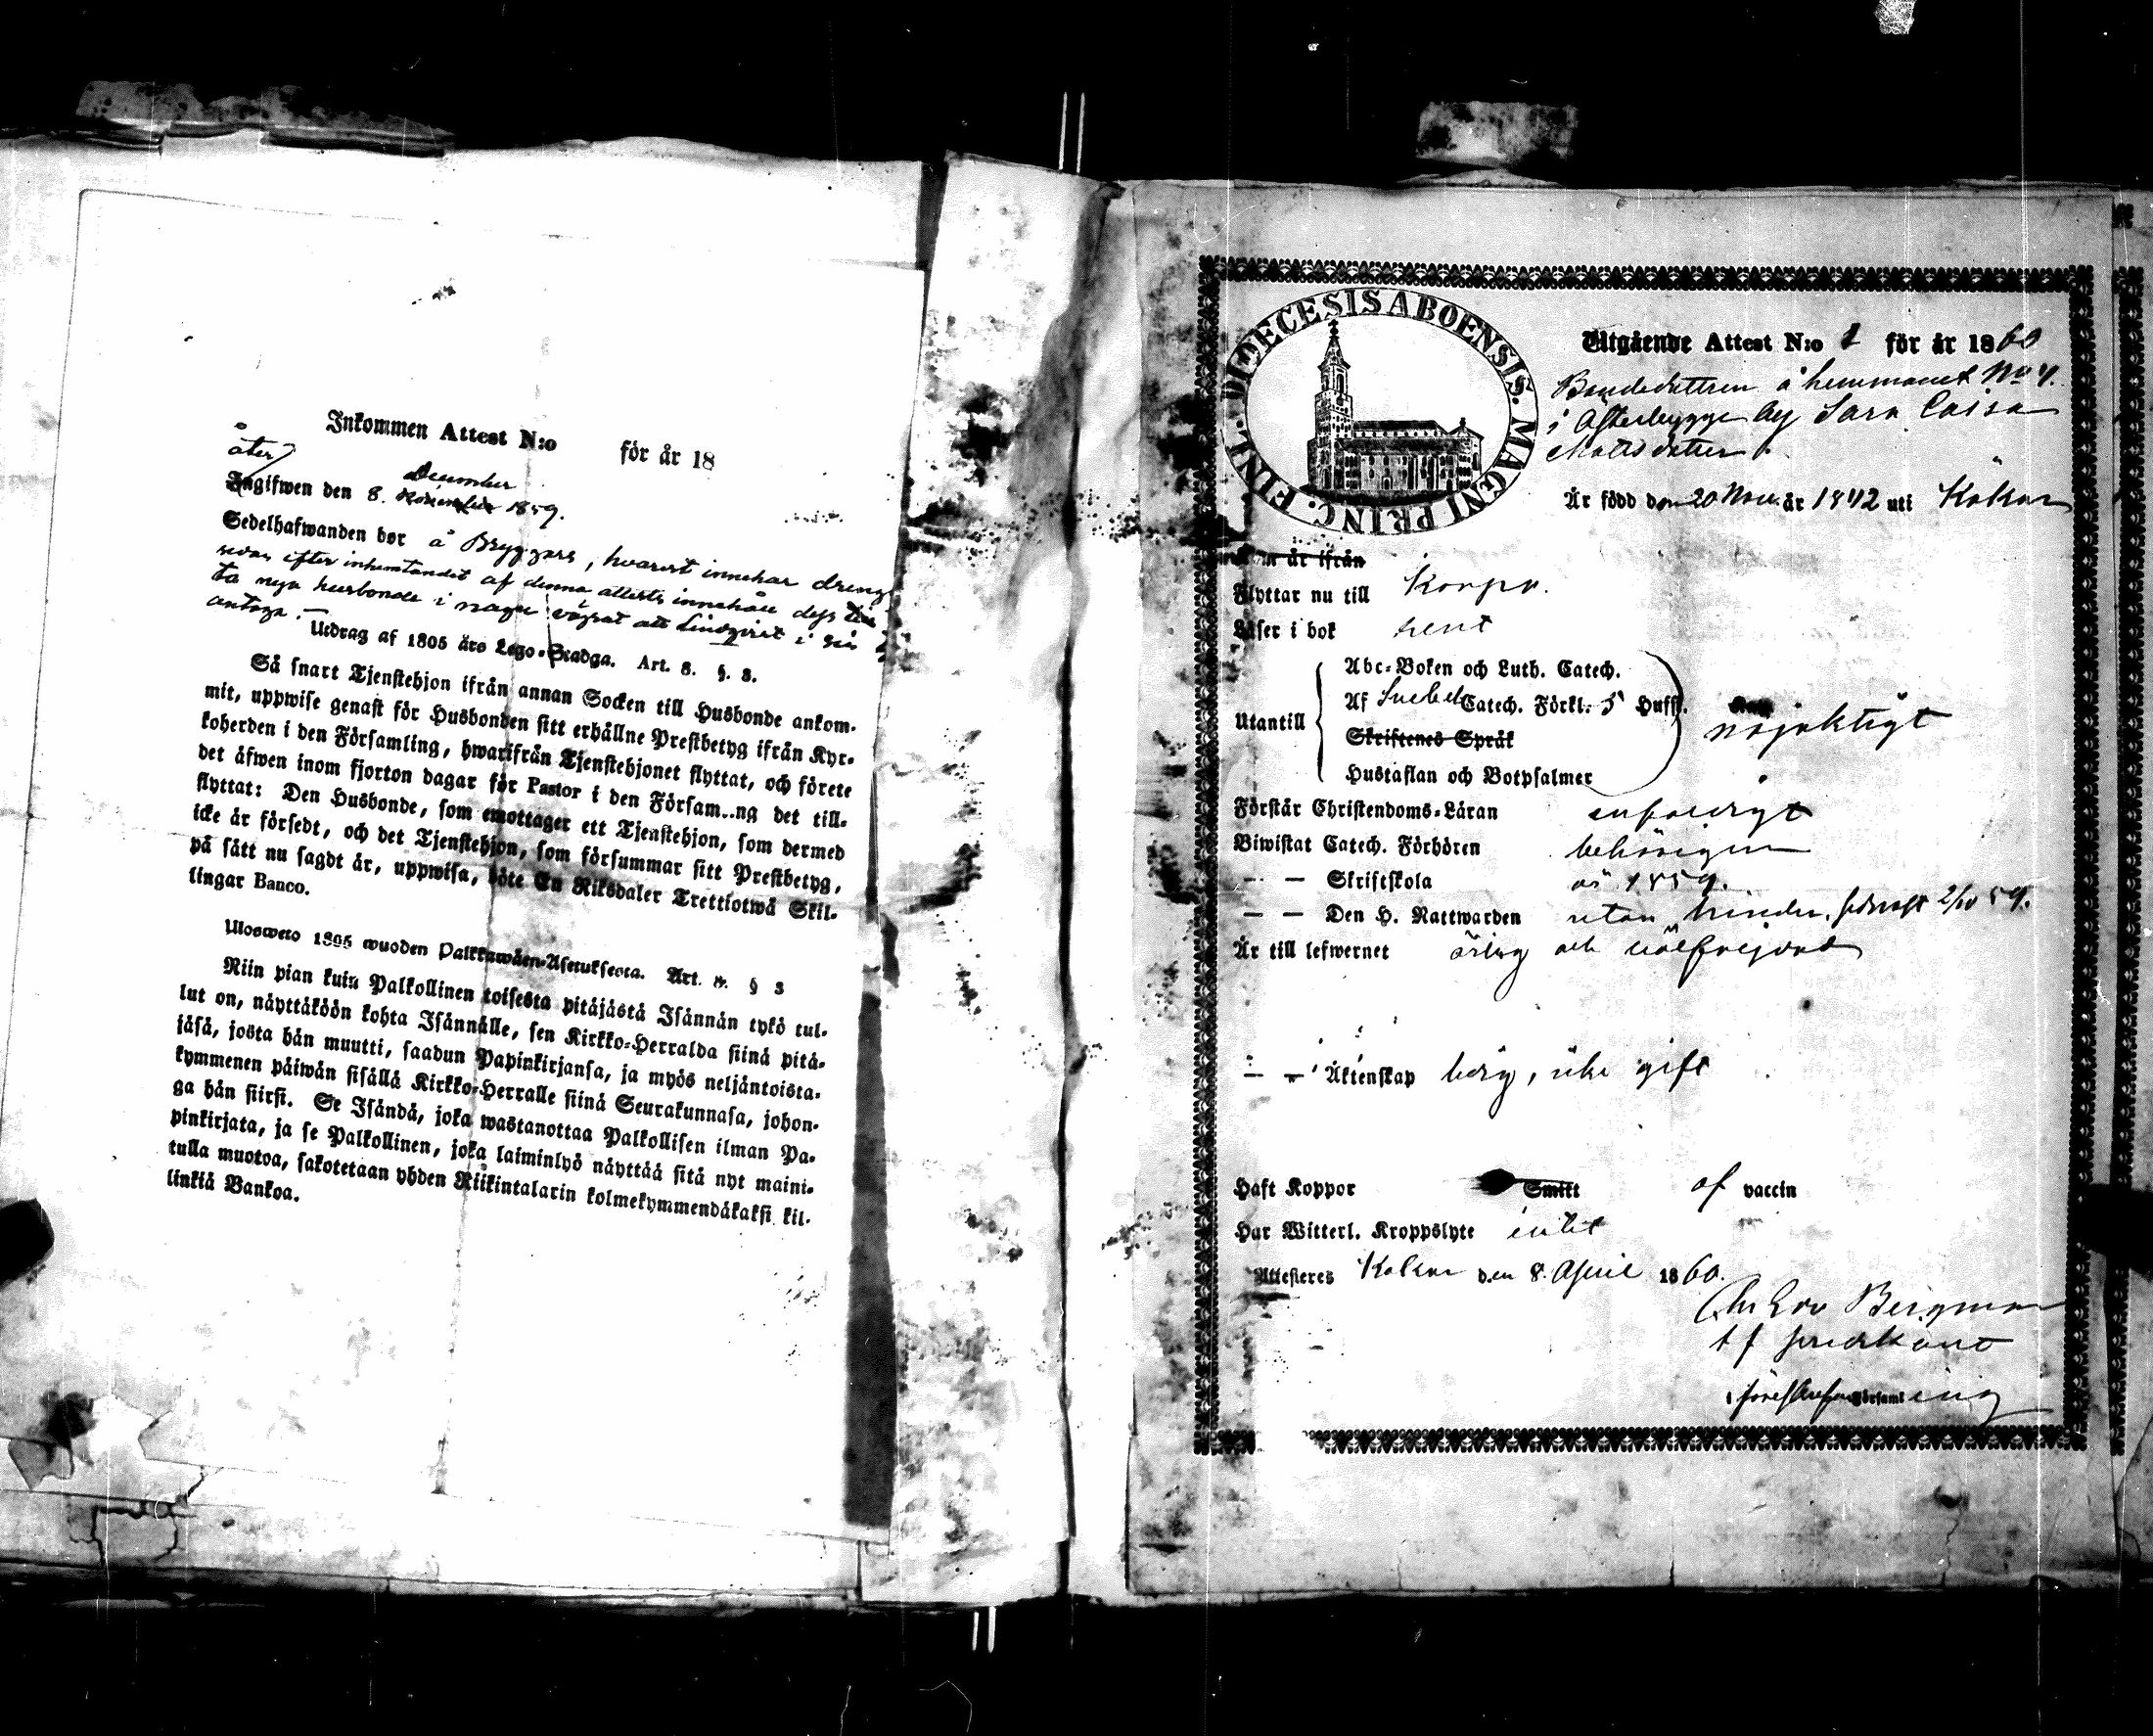 Inkommen Attest N:o för år 18
åter
December
Ingifwen den 8. November 1859.
Sedelhafwanden bor å Bryggars, hvarest innehar dreng
sedan efter inhemtandet af denna attests innehåll dess
ta nya husbonde i Nagu vägrat att Lindqvist i sin
antaga. —
Utdrag af 1805 års Lego-Stadga. Art. 8. §. 3.
Så snart Tjenstehjon ifrån annan Socken till Husbonde ankom-
mit, uppwise genast för Husbonden sitt erhållne Prestbetyg ifrån Kyr-
koherden i den Församling, hwarifrån Tjenstehjonet flyttat, och förete
det äfwen inom fjorton dagar för Pastor i den Försam..ng det till-
flyttat: Den Husbonde, som emottager ett Tjenstehjon, som dermed
icke är försedt, och det Tjenstehjon, som försummar sitt Prestbetyg,
på sätt nu sagdt är, uppwisa, böte En Riksdaler Trettiotwå Skil-
lingar Banco.
Ulosweto 1805 wuoden Palkkawäen-Asetuksesta. Art. § 3
Niin pian kuin Palkollinen toisesta pitäjästä Isännän tykö tul-
lut on, näyttäköön kohta Isännälle, sen Kirkko-Herralda siinä pitä-
jäsä, josta hän muutti, saadun Papinkirjansa, ja myös neljäntoista-
kymmenen päiwän sisällä Kirkko-Herralle siinä Seurakunnasa, johon-
ga hän siirsi. Se Isändä, joka wastanottaa Palkollisen ilman Pa-
pinkirjata, ja se Palkollinen, joka laiminlyö näyttää sitä nyt maini-
tulla muotoa, sakotetaan yhden Riikintalarin kolmekymmendäkaksi kil-
linkiä Bankoa.
DIOECESIS ABOENSIS. MAGNI PRINC. FINL.
Utgående Attest N:o 1 för år 1860
Bondedottren å hemmanet No 4.
i Österbygge by Sara Caisa
Matsdotter.
Är född den 20 Nov. år 1842 uti Kökar
Som är ifrån
Flyttar nu till Korpo.
Läser i bok rent
Abc-Boken och Luth. Catech.
Af Svebel. Catech. Förkl. 5 Hufst.
Utantill
nöjaktigt
Skriftenes Språk
Hustaflan och Botpsalmer
Förstår Christendoms-Läran enfaldigt
Biwistat Catech. Förhören behörigen
— — Skriftskola år 1859.
— — Den H. Nattwarden utan hinder, sednast 2/10 59.
Är till lefwernet ärlig och wälfrejdad
— — Äktenskap ledig, icke gift
Haft Koppor Smitt af vaccin
Har Witterl. Kroppslyte intet
Attesteras Kökar den 8. April 1860.
Bergman
t f predikant
i församl